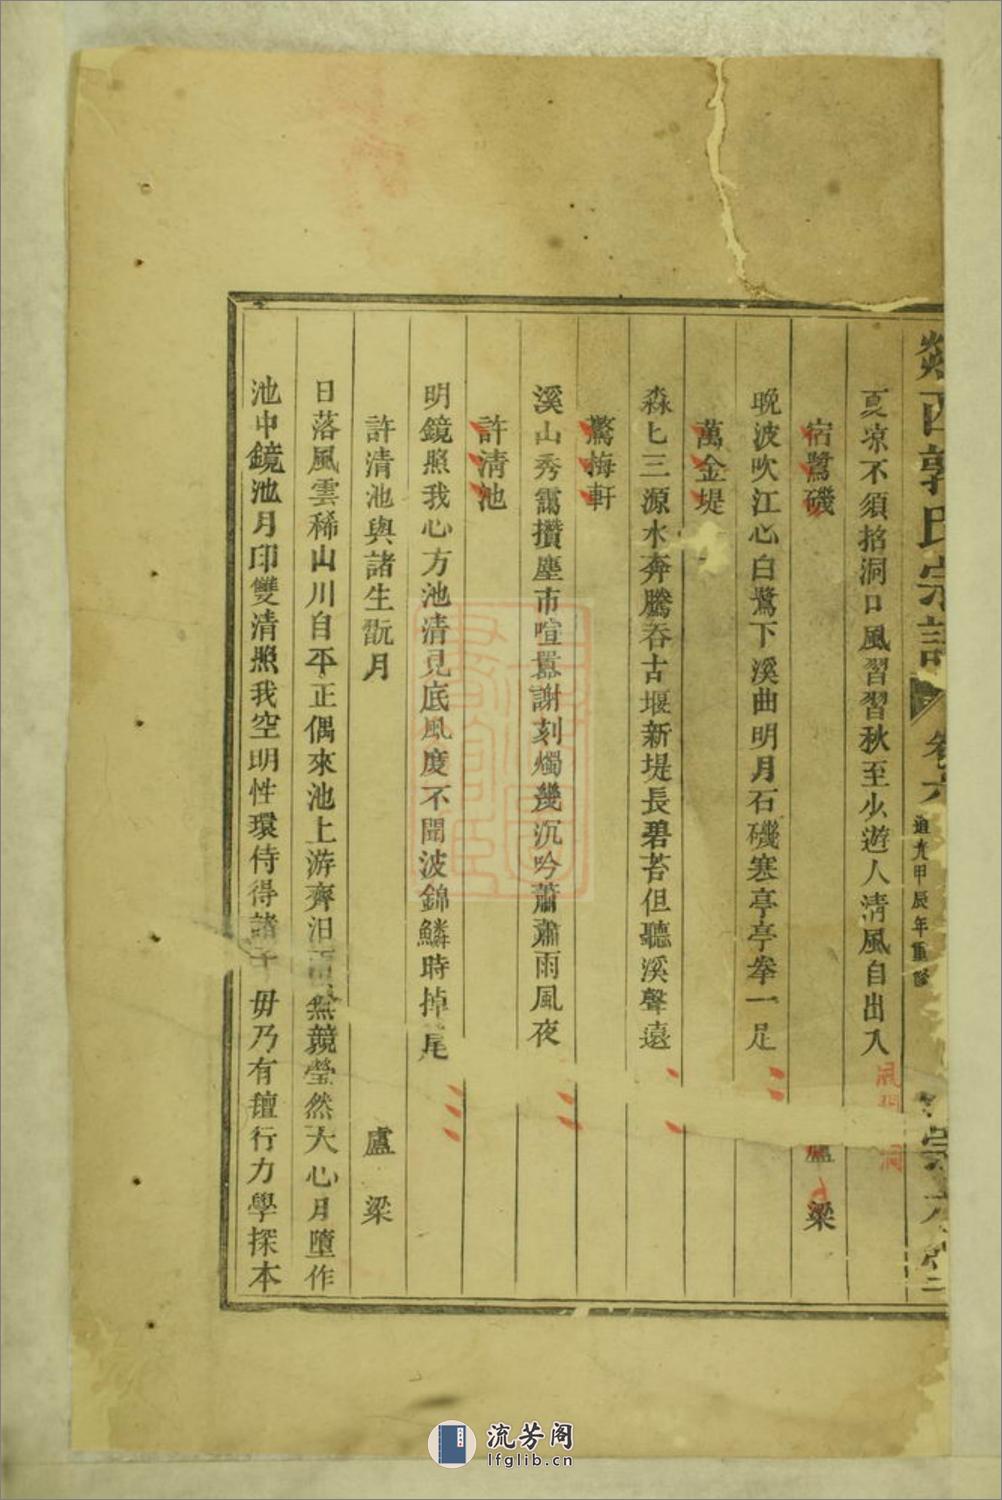 西郭氏宗譜 卷六 道光甲辰年重修
夏凉不須掐洞口風習習秋至少遊人淸風自出入
宿鷺磯 盧 梁
晚波吹江心白鷺下溪曲明月石磯寒亭亭拳一足
萬金堤
森匕三源水奔騰吞古堰新堤長碧苔但聽溪聲遠
驚梅軒
溪山秀靄攢塵市喧囂謝刻燭幾沉吟蕭蕭雨風夜
許淸池
明鏡照我心方池淸見底風度不聞波錦鱗時掉尾
許淸池與諸生翫月 盧 梁
日落風雲稀山川自平正偶來池上游齊汨無競瑩然天心月墮作
池中鏡池月印雙淸照我空明性環侍得諸子毋乃有壇行力學探本
流芳阁
lfglib.cn